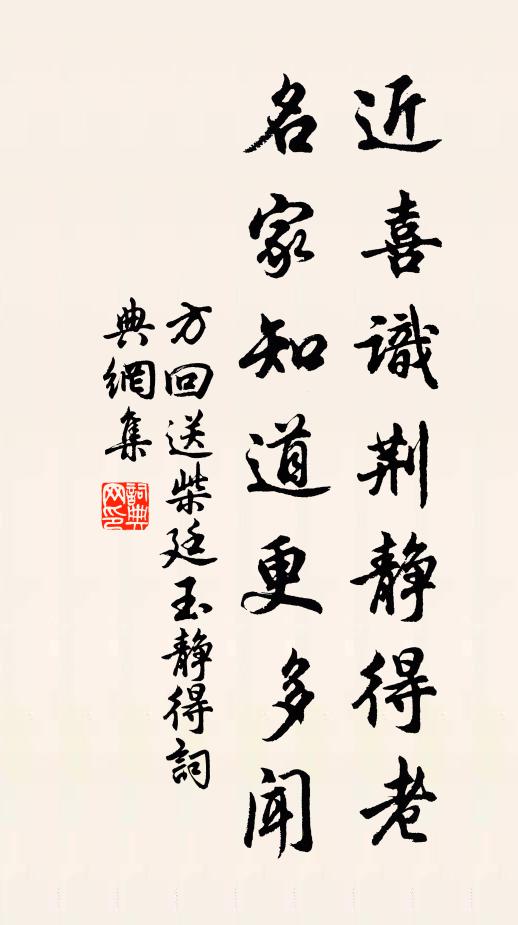 近喜識荆静得老
名家知道更多聞
方回送柴廷玉静得詞
典網集
詞典网印